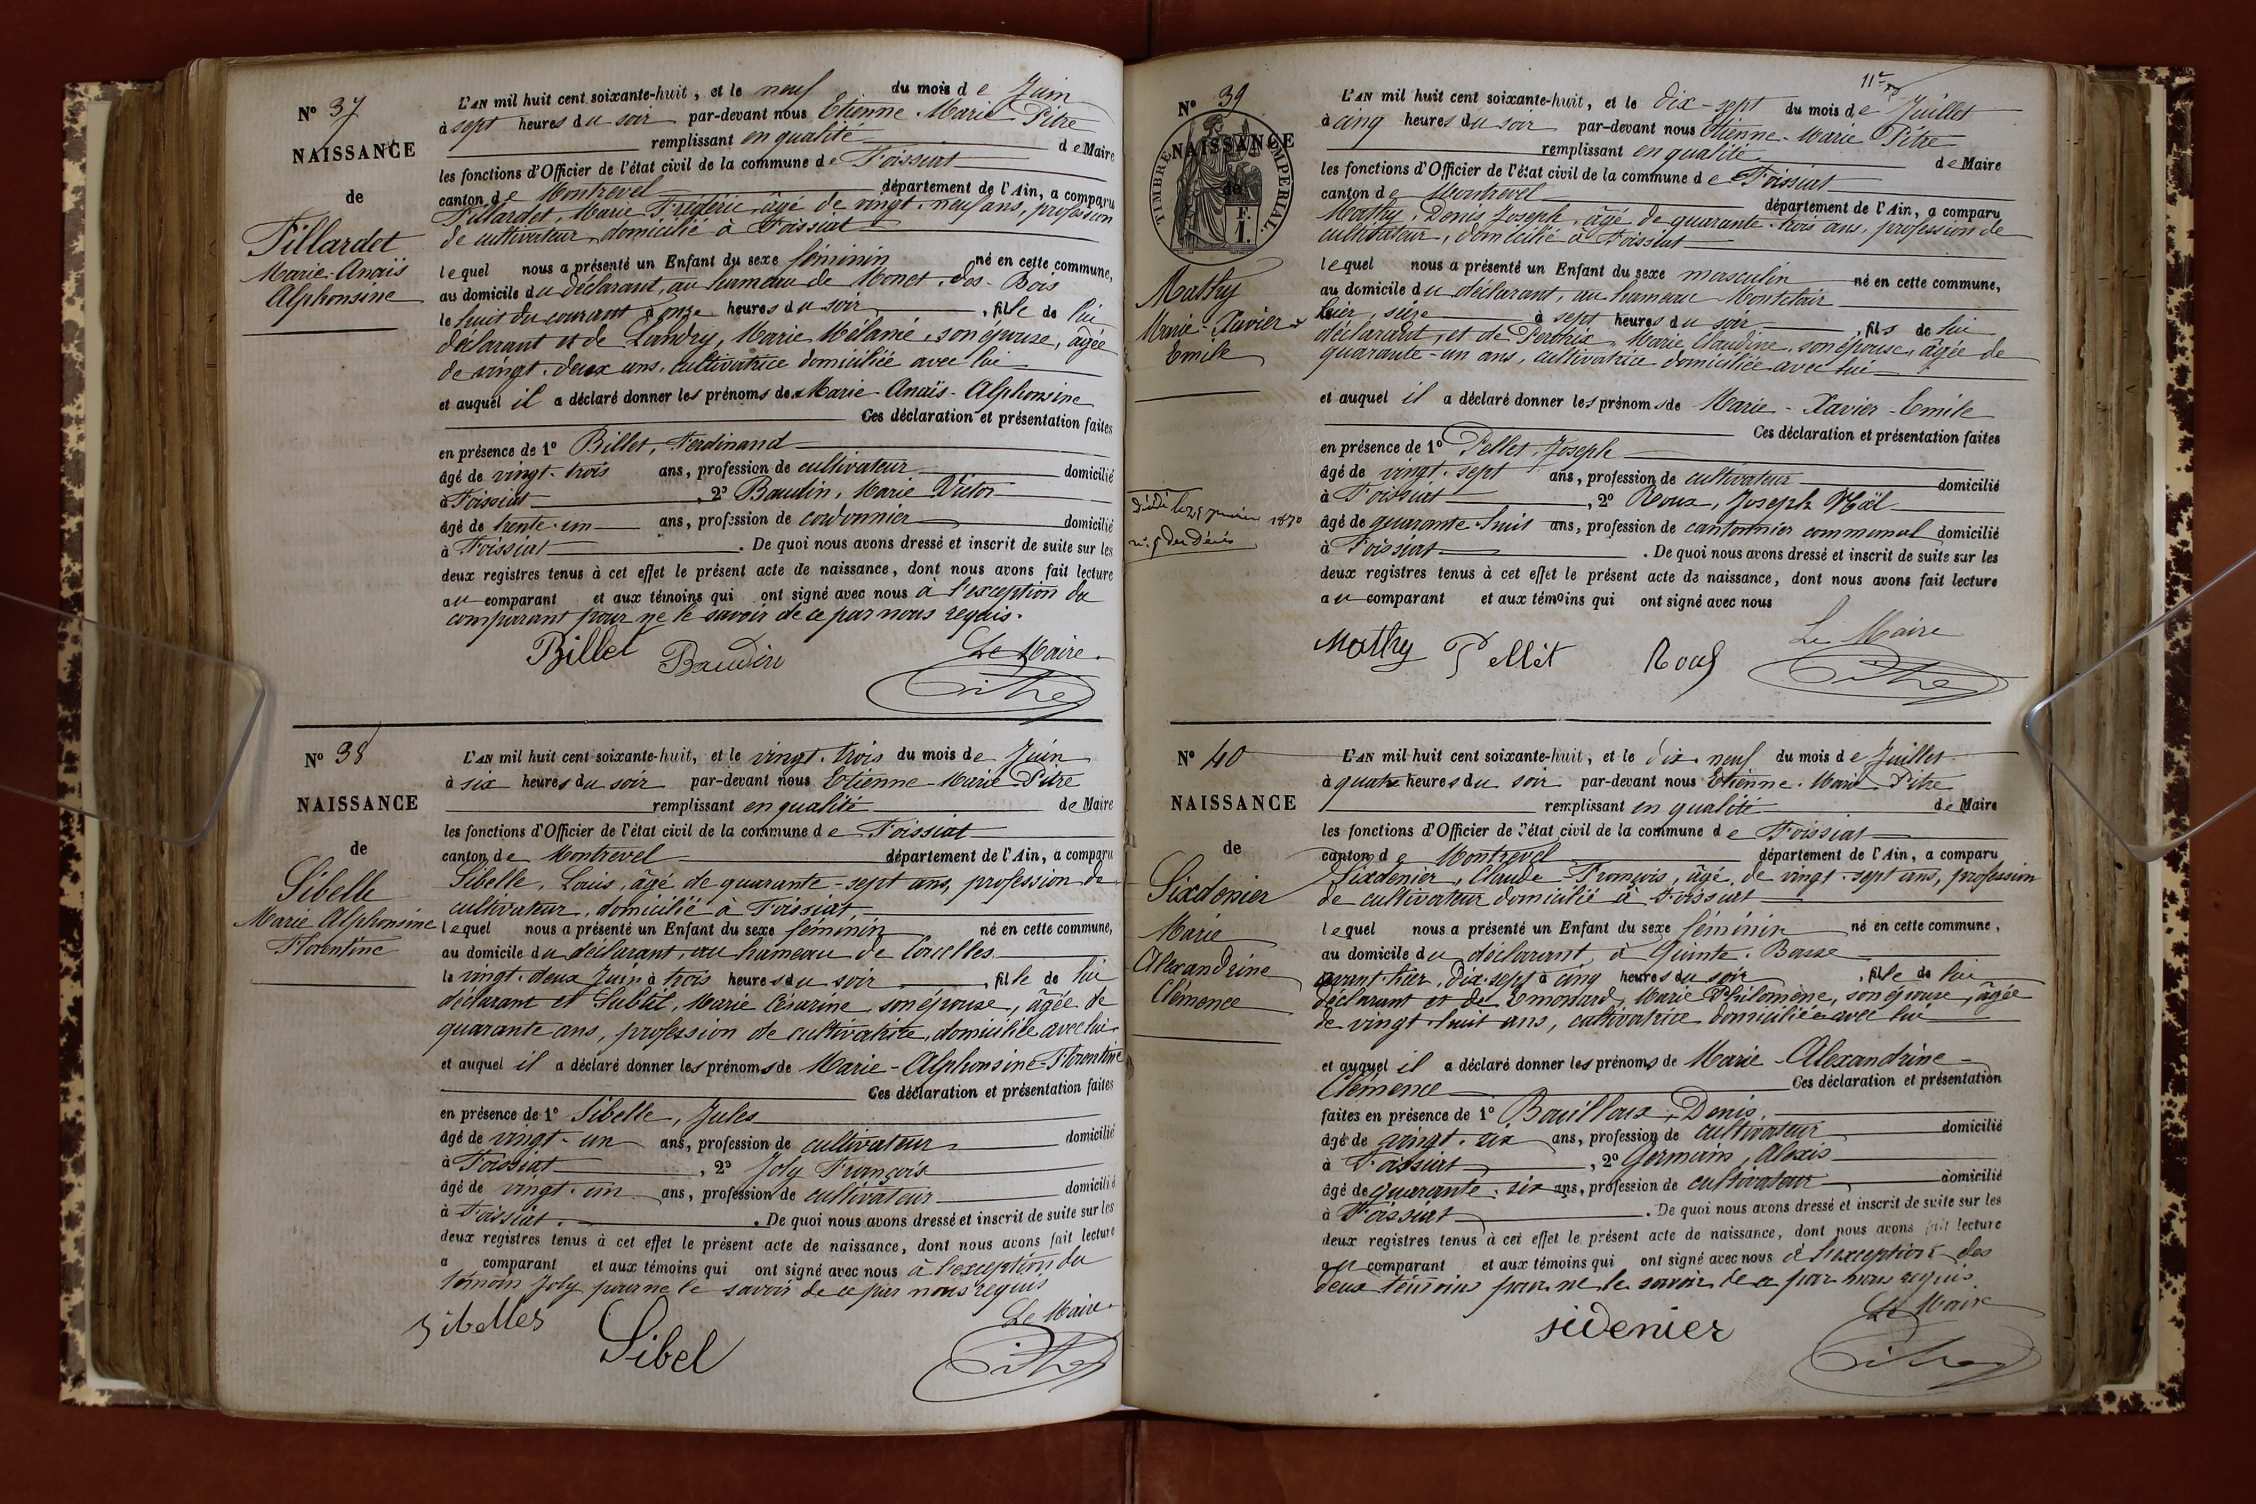 N° 37
NAISSANCE
de
Fillardet
Marie-Anaïs
Alphonsine
L'AN mil huit cent soixante-huit, et le neuf du mois de Juin
à sept heures du soir par-devant nous Etienne-Marie Pitre
remplissant en qualité de Maire
les fonctions d'Officier de l'état civil de la commune de Foissiat
canton de Montrevel département de l'Ain, a comparu
Fillardet, Marie Fréderic, âgé de vingt-neuf ans, profession
de cultivateur, domicilié à Foissiat
lequel nous a présenté un Enfant du sexe féminin né en cette commune,
au domicile du déclarant, au hameau de Monet-des-Bois
le huit du courant à onze heures du soir, fille de lui
déclarant et de Landry, Marie Mélanie, son épouse, âgée
de vingt-deux ans, cultivatrice domiciliée avec lui
et auquel il a déclaré donner les prénoms de Marie-Anaïs-Alphonsine
Ces déclaration et présentation faites
en présence de 1° Billet, Ferdinand
âgé de vingt-trois ans, profession de cultivateur domicilié
à Foissiat, 2° Baudin, Marie Victor
âgé de trente-un ans, profession de cordonnier domicilié
à Foissiat. De quoi nous avons dressé et inscrit de suite sur les
deux registres tenus à cet effet le présent acte de naissance, dont nous avons fait lecture
au comparant et aux témoins qui ont signé avec nous à l'exception du
comparant pour ne le savoir de ce par nous requis.
Billet Baudin Le Maire
Pitre
N° 38
NAISSANCE
de
Sibelle
Marie Alphonsine
Florentine
L'AN mil huit cent soixante-huit, et le vingt-trois du mois de Juin
à six heures du soir par-devant nous Etienne-Marie Pitre
remplissant en qualité de Maire
les fonctions d'Officier de l'état civil de la commune de Foissiat
canton de Montrevel département de l'Ain, a comparu
Sibelle, Louis, âgé de quarante-sept ans, profession de
cultivateur, domicilié à Foissiat,
lequel nous a présenté un Enfant du sexe féminin né en cette commune,
au domicile du déclarant, au hameau de Corcelles
le vingt-deux Juin à trois heures du soir, fille de lui
déclarant et Subtil, Marie Césarine son épouse, âgée de
quarante ans, profession de cultivatrice, domiciliée avec lui
et auquel il a déclaré donner les prénoms de Marie-Alphonsine-Florentine
Ces déclaration et présentation faites
en présence de 1° Sibelle, Jules
âgé de vingt-un ans, profession de cultivateur domicilié
à Foissiat, 2° Joly François
âgé de vingt-un ans, profession de cultivateur domicilié
à Foissiat. De quoi nous avons dressé et inscrit de suite sur les
deux registres tenus à cet effet le présent acte de naissance, dont nous avons fait lecture
a comparant et aux témoins qui ont signé avec nous à l'exception du
témoin Joly pour ne le savoir de ce par nous requis
Le Maire
Sibelles Sibel Pitre
11e
N° 39
NAISSANCE
de
TIMBRE IMPERIAL.
F.
1.
Mathy
Marie-Xavier
Emile
L'AN mil huit cent soixante-huit, et le dix-sept du mois de Juillet
à cinq heures du soir par-devant nous Etienne-Marie Pitre
remplissant en qualité de Maire
les fonctions d'Officier de l'état civil de la commune de Foissiat
canton de Montrevel département de l'Ain, a comparu
Mathy, Denis Joseph, âgé de quarante-trois ans, profession de
cultivateur, domicilié à Foissiat
lequel nous a présenté un Enfant du sexe masculin né en cette commune,
au domicile du déclarant, au hameau Montclair
hier, seize à sept heures du soir, fils de lui
déclarant, et de Perdrix, Marie Claudine, son épouse, âgée de
quarante-un ans, cultivatrice domiciliée avec lui
et auquel il a déclaré donner les prénoms de Marie-Xavier-Emile
Ces déclaration et présentation faites
en présence de 1° Pellet, Joseph
âgé de vingt-sept ans, profession de cultivateur domicilié
à Foissiat, 2° Roux, Joseph Noël
âgé de quarante-huit ans, profession de cantonnier communal domicilié
à Foissiat. De quoi nous avons dressé et inscrit de suite sur les
deux registres tenus à cet effet le présent acte de naissance, dont nous avons fait lecture
au comparant et aux témoins qui ont signé avec nous
décédé le 25 janvier 1870
n° 5 des décès
Le Maire
Mathy Pellet Roux Pitre
N° 40
NAISSANCE
de
Sixdenier
Marie
Alexandrine
Clémence
L'AN mil huit cent soixante-huit, et le dix-neuf du mois de Juillet
à quatre heures du soir par-devant nous Etienne-Marie Pitre
remplissant en qualité de Maire
les fonctions d'Officier de l'état civil de la commune de Foissiat
canton de Montrevel département de l'Ain, a comparu
Sixdenier, Claude-François, âgé de vingt-sept ans, profession
de cultivateur domicilié à Foissiat
lequel nous a présenté un Enfant du sexe féminin né en cette commune,
au domicile du déclarant, à Quinte-Basse
avant-hier, dix-sept à cinq heures du soir, fille de lui
déclarant et de Emorard, Marie Philomène, son épouse, âgée
de vingt-huit ans, cultivatrice domiciliée avec lui
et auquel il a déclaré donner les prénoms de Marie-Alexandrine-
Clémence Ces déclaration et présentation
faites en présence de 1° Bouilloux, Denis,
âgé de vingt-six ans, profession de cultivateur domicilié
à Foissiat, 2° Germain, Alexis
âgé de quarante-six ans, profession de cultivateur domicilié
à Foissiat. De quoi nous avons dressé et inscrit de suite sur les
deux registres tenus à cet effet le présent acte de naissance, dont nous avons fait lecture
au comparant et aux témoins qui ont signé avec nous à l'exception des
deux témoins pour ne le savoir de ce par nous requis.
Le Maire
sidenier Pitre